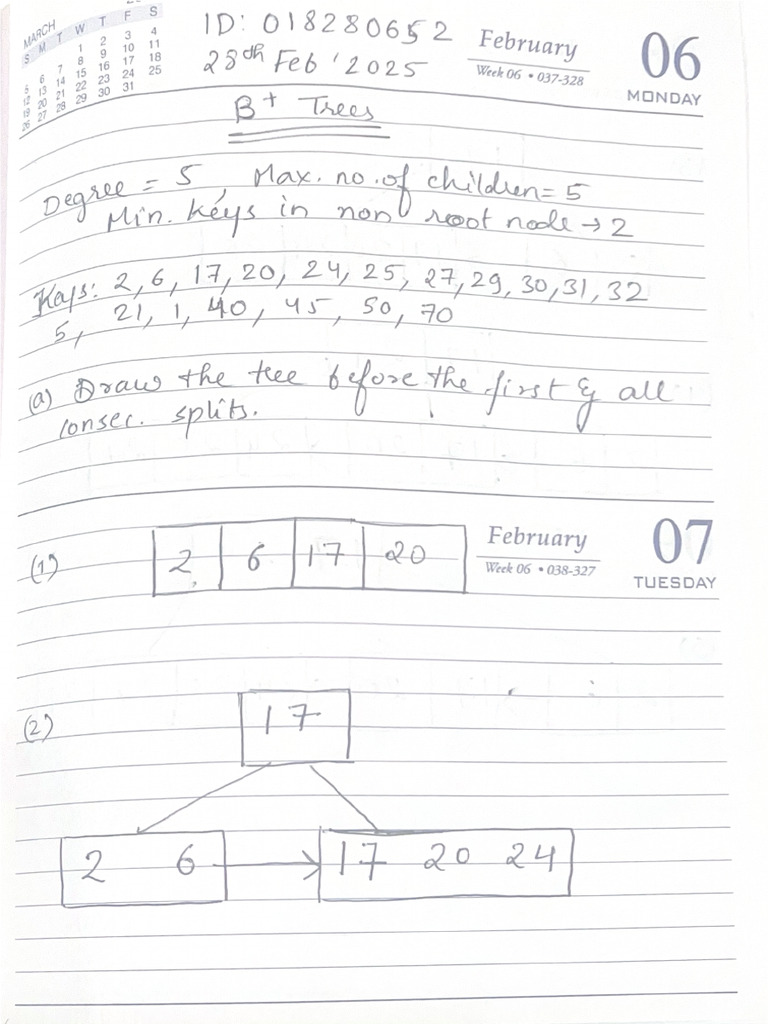 MARCH
S M T W T F S
1 2 3 4
5 6 7 8 9 10 11
12 13 14 15 16 17 18
19 20 21 22 23 24 25
26 27 28 29 30 31
ID: 018280652
28th Feb '2025
February
Week 06 • 037-328
06
MONDAY
B+ Trees
Degree = 5, Max. no. of children = 5
Min. keys in non root node → 2
Keys: 2, 6, 17, 20, 24, 25, 27, 29, 30, 31, 32
5, 21, 1, 40, 45, 50, 70
(a) Draw the tree before the first & all
consec. splits.
February
Week 06 • 038-327
07
TUESDAY
(1) 2 6 17 20
(2) 17
2 6 → 17 20 24